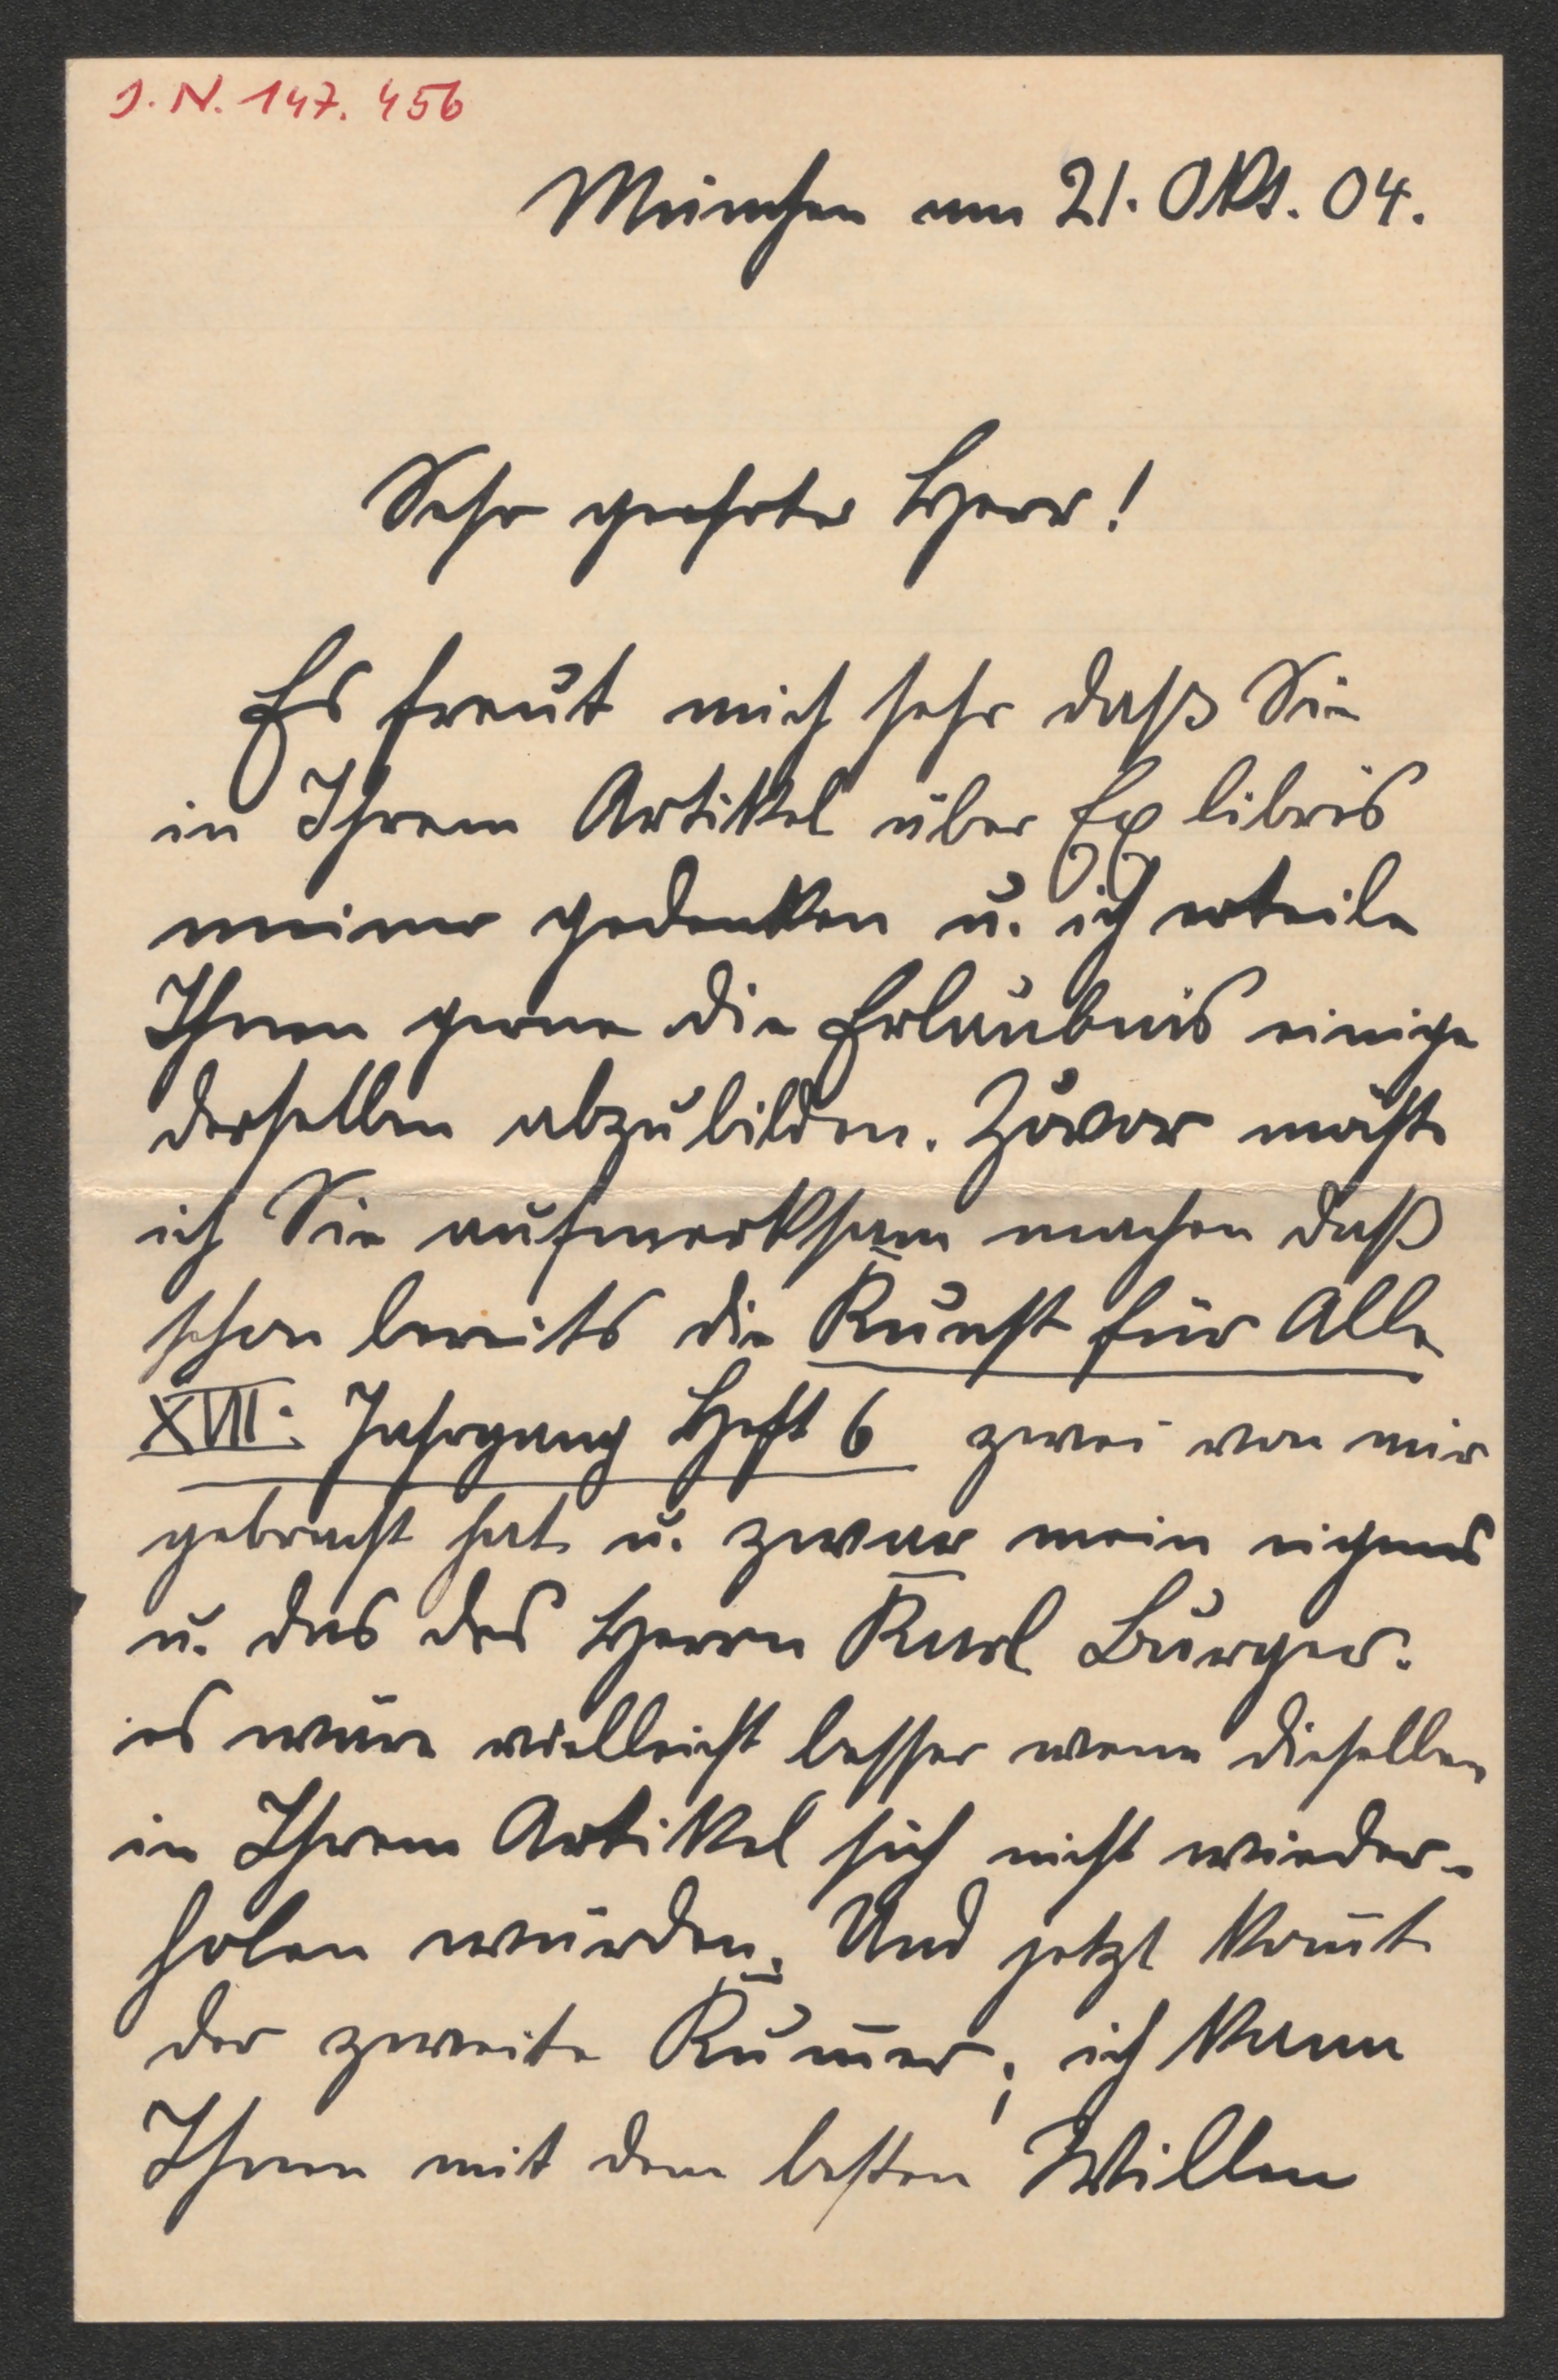 J. N. 147.456
München am 21. Okt. 04.
Sehr geehrter Herr!
Es freut mich sehr daß Sie
in Ihrem Artikel über Ex libris
meiner gedenken u. ich erteile
Ihnen gerne die Erlaubnis einige
derselben abzubilden. Zuvor möchte
ich Sie aufmerksam machen daß
schon bereits die Kunst für Alle
XVII. Jahrgang Heft 6 zwei von mir
gebracht hat u. zwar mein eigenes
u. das des Herrn Karl Burger.
es wäre vielleicht besser wenn dieselben
in Ihrem Artikel sich nicht wieder-
holen würden. Und jetzt kom̄t
der zweite Kum̄er; ich kann
Ihnen mit dem besten Willen